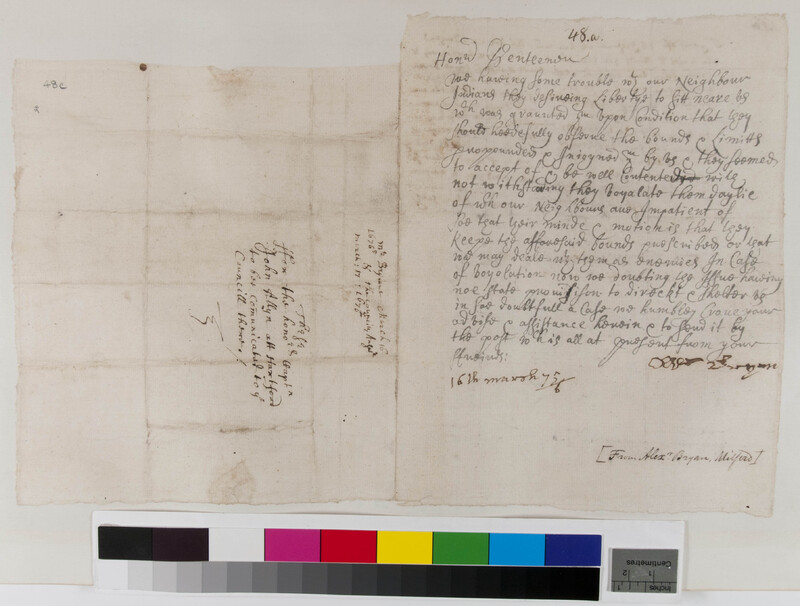 48.a.
Honrd Gentlemen
we having some trouble wth our Neighbour
Indians they desireing Libertye to sitt neare us
wch was graunted ym upon Condition that they
should heedefully observe the bounds & Limitts
propounded & Injoyned ym by us & they seemed
to accept of & be well Contented wth
not withstanding they voyalate them daylie
of wh our Neighbours are Impatient of
soe that their minde & motion is that they
keepe the afforesaid bounds prescribed or that
we may deale wth them as enemies In Case
of voyolution now we doubting the Issue having
noe State provission to direckt & shelter us
in soe doubtfull a Case we humbley crave your
advise & assistance herein & to send it by
the post wh is all at present from your
freinds:
Bryan
16th march 75/6
[From Alexr Bryan, Milford]
48c
Mr Bryans March 16
1675/6
march: 17: 1675/6
These
For the honord Captn
John Allyn att Hartford
to bee Comunicated to ye
Councill there